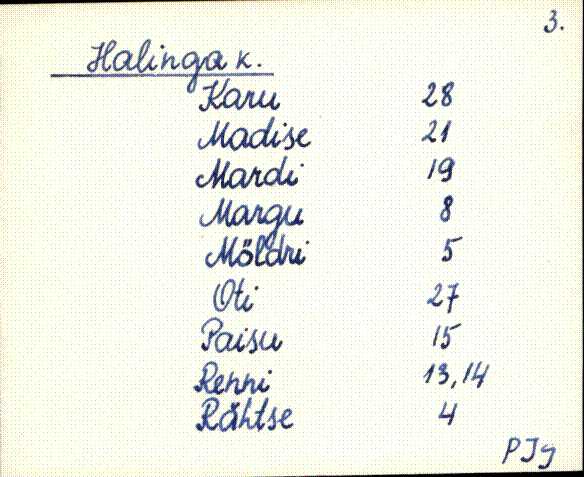 3.
Halinga k.
Karu 28
Madise 21
Mardi 19
Margu 8
Möldri 5
Oti 27
Paisu 15
Renni 13,14
Rähtse 4
PJg